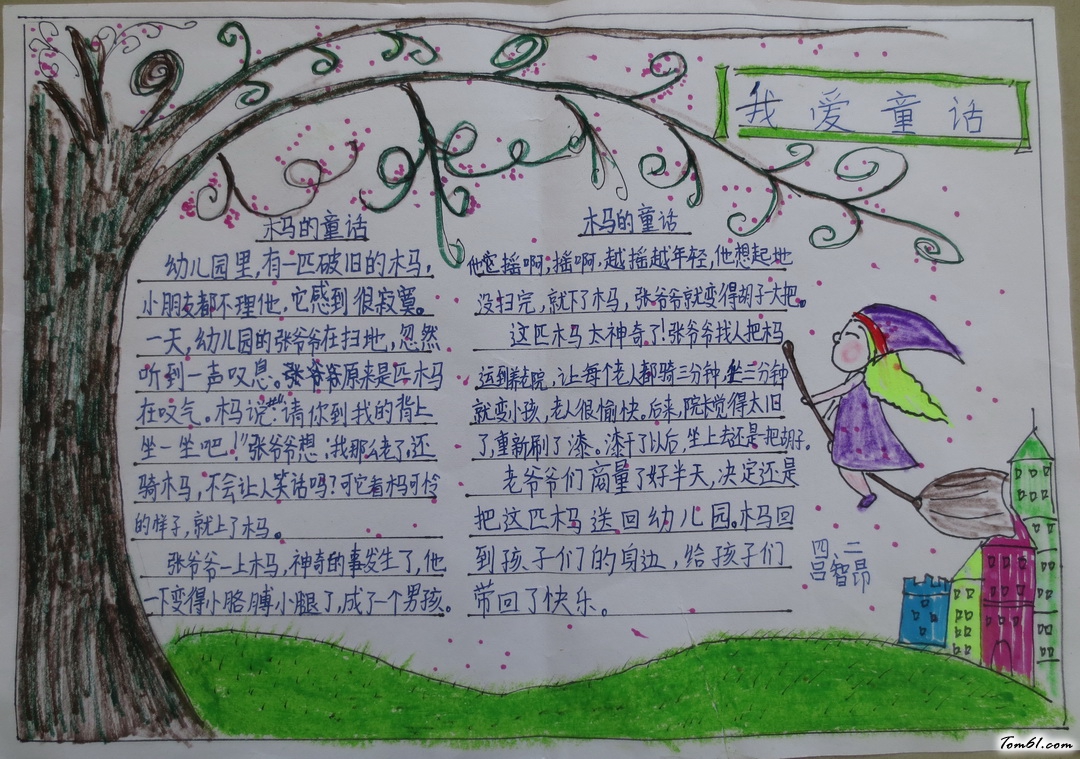 我爱童话
木马的童话
幼儿园里,有一匹破旧的木马,
小朋友都不理他,它感到很寂寞。
一天,幼儿园的张爷爷在扫地,忽然
听到一声叹息。张爷爷原来是匹木马
在叹气。木马说:"请你到我的背上
坐一坐吧!"张爷爷想:我那么老了,还
骑木马,不会让人笑话吗?可它看木马可怜
的样子,就上了木马。
张爷爷一上木马,神奇的事发生了,他
一下变得小胳膊小腿了,成了一个男孩。
木马的童话
他摇啊,摇啊,越摇越年轻,他想起地
没扫完,就下了木马,张爷爷就变得胡子大把。
这匹木马太神奇了!张爷爷找人把木马
运到养老院,让每个老人都骑三分钟,坐三分钟
就变小孩,老人很愉快。后来,院长觉得太旧
了,重新刷了漆。漆干了以后,坐上去还是把胡子。
老爷爷们商量了好半天,决定还是
把这匹木马送回幼儿园。木马回
到孩子们的身边,给孩子们
带回了快乐。
四、二
吕智昂
Tom61.com